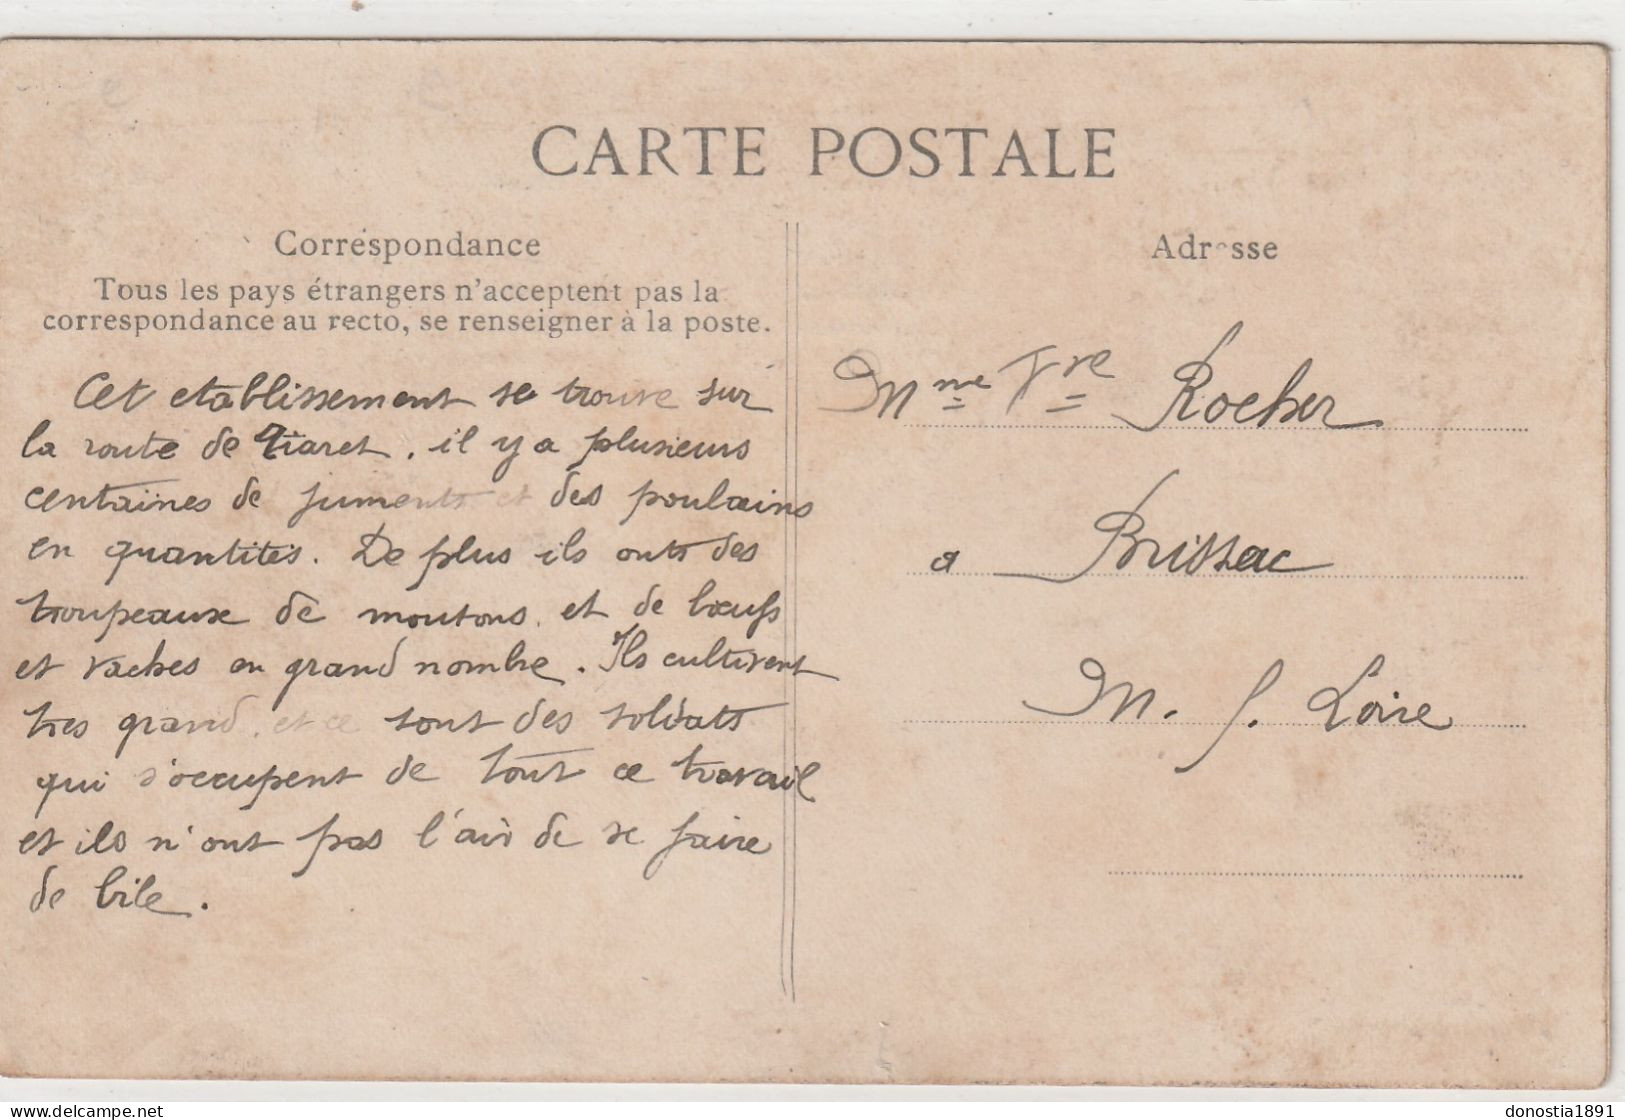 CARTE POSTALE
Correspondance
Tous les pays étrangers n'acceptent pas la
correspondance au recto, se renseigner à la poste.
Cet etablissement se trouve sur
la route de Tiaret. il y a plusieurs
centaines de juments et des poulains
en quantités. De plus ils onts des
troupeaux de moutons et de bœufs
et vaches en grand nombre. Ils cultivent
tres grand, et ce sont des soldats
qui s'occupent de tout ce travail
et ils n'ont pas l'air de se faire
de bile.
Adresse
Mme Vve Rocher
a Brissac
M. f. Loire
donostia1891